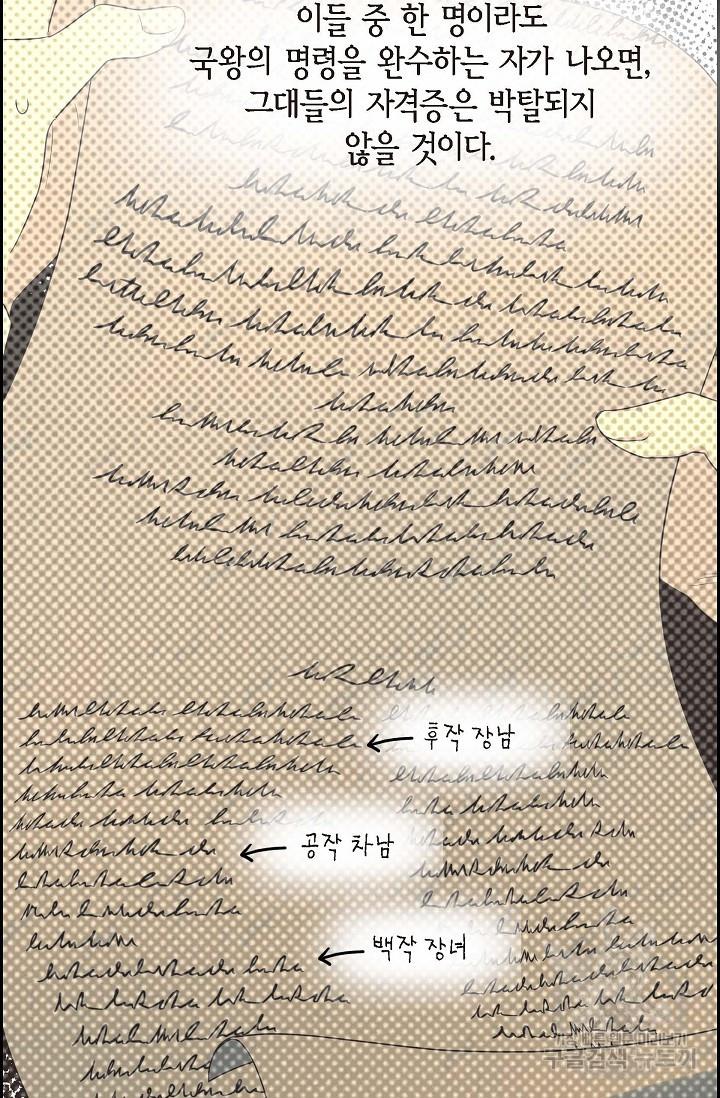 이들 중 한 명이라도
국왕의 명령을 완수하는 자가 나오면,
그대들의 자격증은 박탈되지
않을 것이다.
← 후작 장남
← 공작 차남
← 백작 장녀
구글검색 뉴토끼